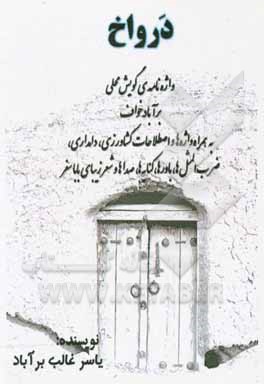 دَرواخ
واژه نامه ی گویش محلی
برآباد خواف
به همراه واژه ها و اصطلاحات کشاورزی، دامداری،
ضرب المثل ها، باورها، کنایه ها، صداها و شعر زیبای بابا سفر
نویسنده:
یاسر غالب برآباد